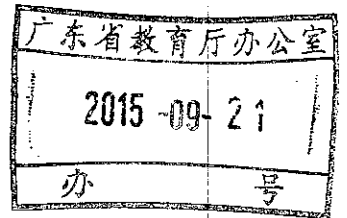 广东省教育厅办公室
2015-09-21
办 号